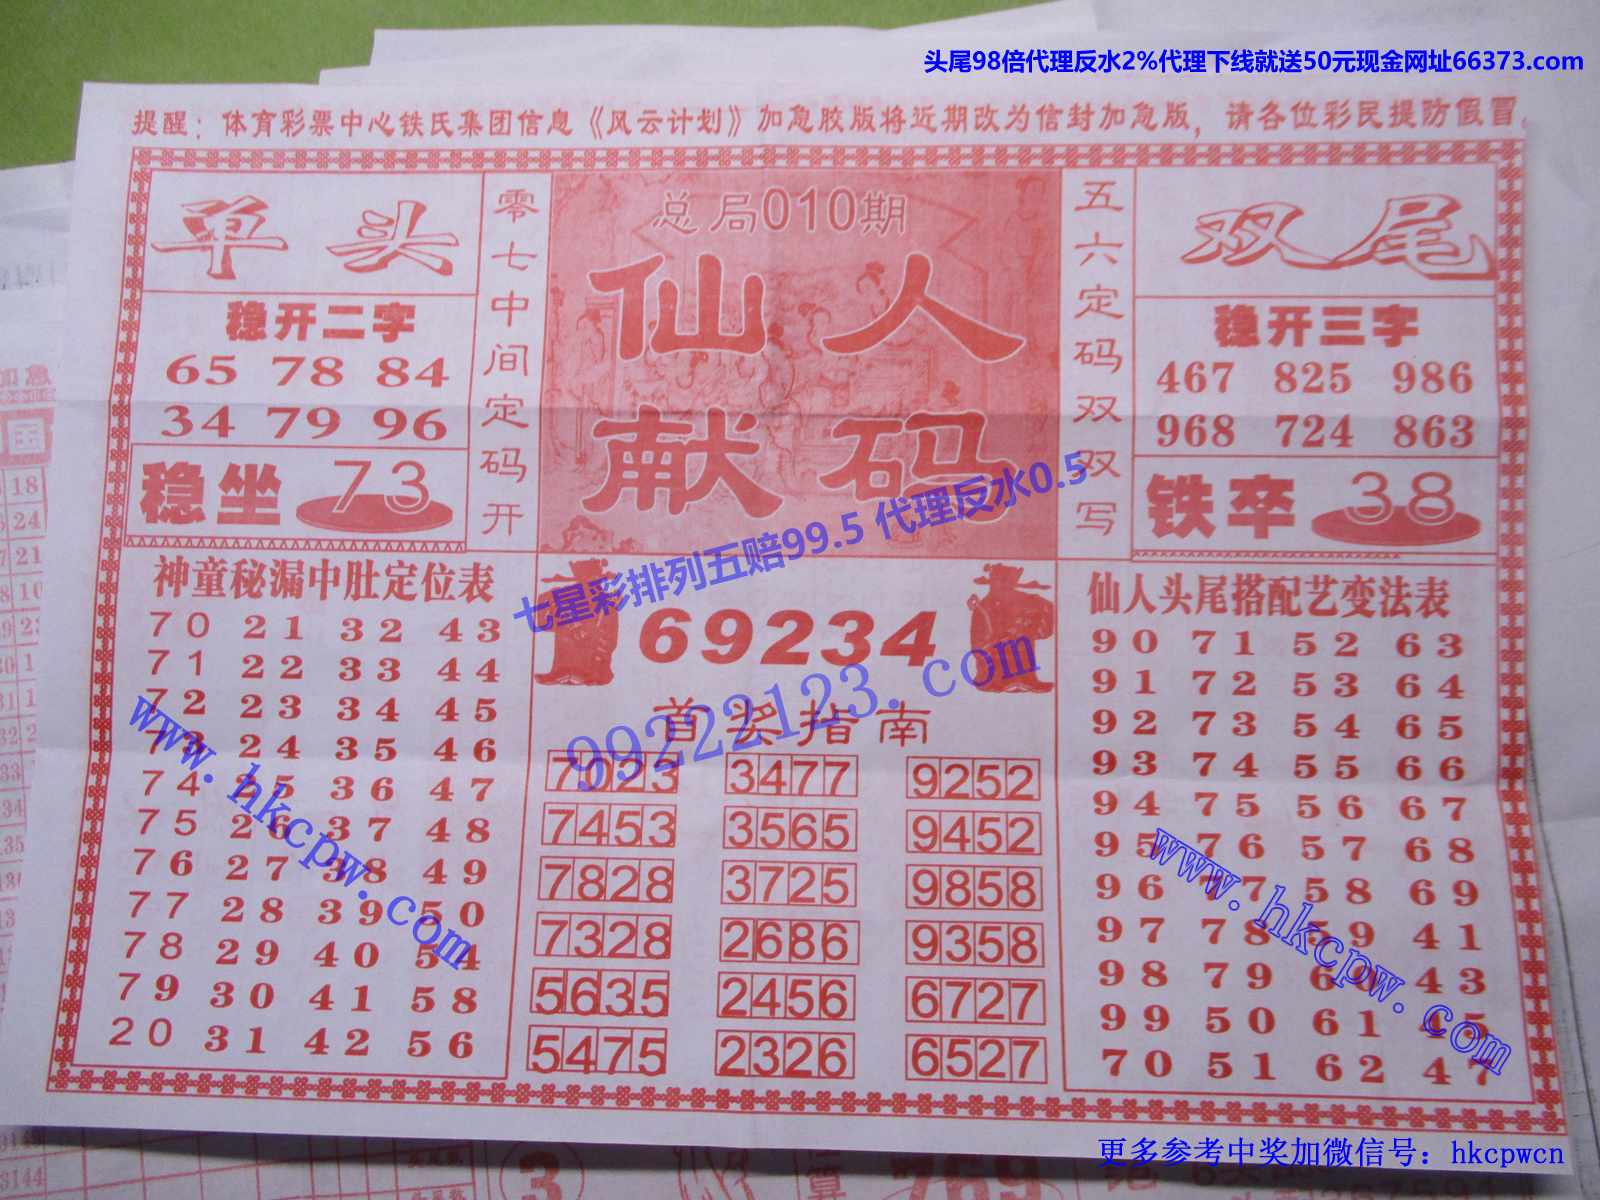 头尾98倍代理反水2%代理下线就送50元现金网址66373.com
提醒：体育彩票中心铁氏集团信息《风云计划》加急胶版将近期改为信封加急版，请各位彩民提防假冒.
单头
稳开二字
65 78 84
34 79 96
稳坐 73
零七中间定码开
总局010期
仙人
献码
五六定码双双写
双尾
稳开三字
467 825 986
968 724 863
铁卒 38
七星彩排列五赔99.5 代理反水0.5
99222123.com
神童秘漏中肚定位表
70 21 32 43
71 22 33 44
72 23 34 45
73 24 35 46
74 25 36 47
75 26 37 48
76 27 38 49
77 28 39 50
78 29 40 54
79 30 41 58
20 31 42 56
www.hkcpw.com
69234
首奖指南
7023 3477 9252
7453 3565 9452
7828 3725 9858
7328 2686 9358
5635 2456 6727
5475 2326 6527
仙人头尾搭配艺变法表
90 71 52 63
91 72 53 64
92 73 54 65
93 74 55 66
94 75 56 67
95 76 57 68
96 77 58 69
97 78 59 41
98 79 60 43
99 50 61 45
70 51 62 47
www.hkcpw.com
更多参考中奖加微信号：hkcpwcn